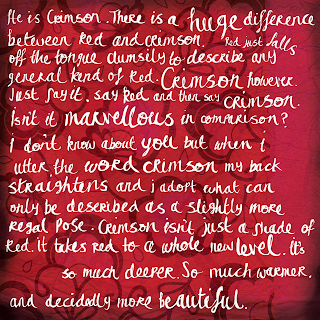 He is Crimson. There is a huge difference
between Red and crimson. Red just falls
off the tongue clumsily to describe any
general kind of Red. Crimson however.
Just say it. say Red and then say crimson.
Isn't it marvellous in comparison?
I don't know about you but when i
utter the word crimson my back
straightens and i adopt what can
only be described as a slightly more
regal pose. Crimson isn't just a shade of
Red. it takes red to a whole new level. It's
so much deeper. So much warmer.
and decidedly more beautiful.